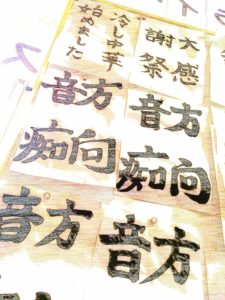 大感
謝祭
冷し中華
始めました
方向
音痴
方向
音痴
方
音
方
音